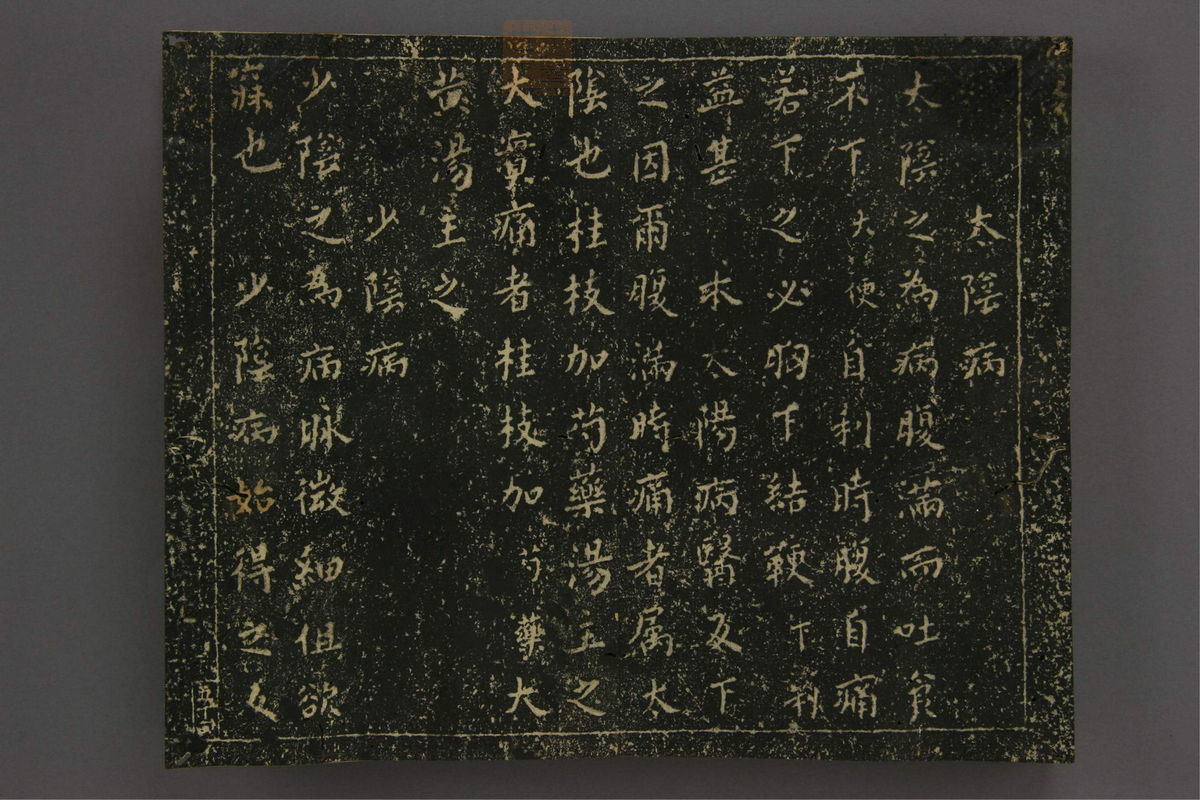 太陰病
大陰之為病腹滿而吐食
不下大便自利時腹自痛
若下之必胸下結鞕下利
益甚 本太陽病醫反下
之因爾腹滿時痛者属太
陰也桂枝加芍藥湯主之
大實痛者桂枝加芍藥大
黄湯主之
少陰病
少陰之為病脉微細但欲
寐也 少陰病始得之反